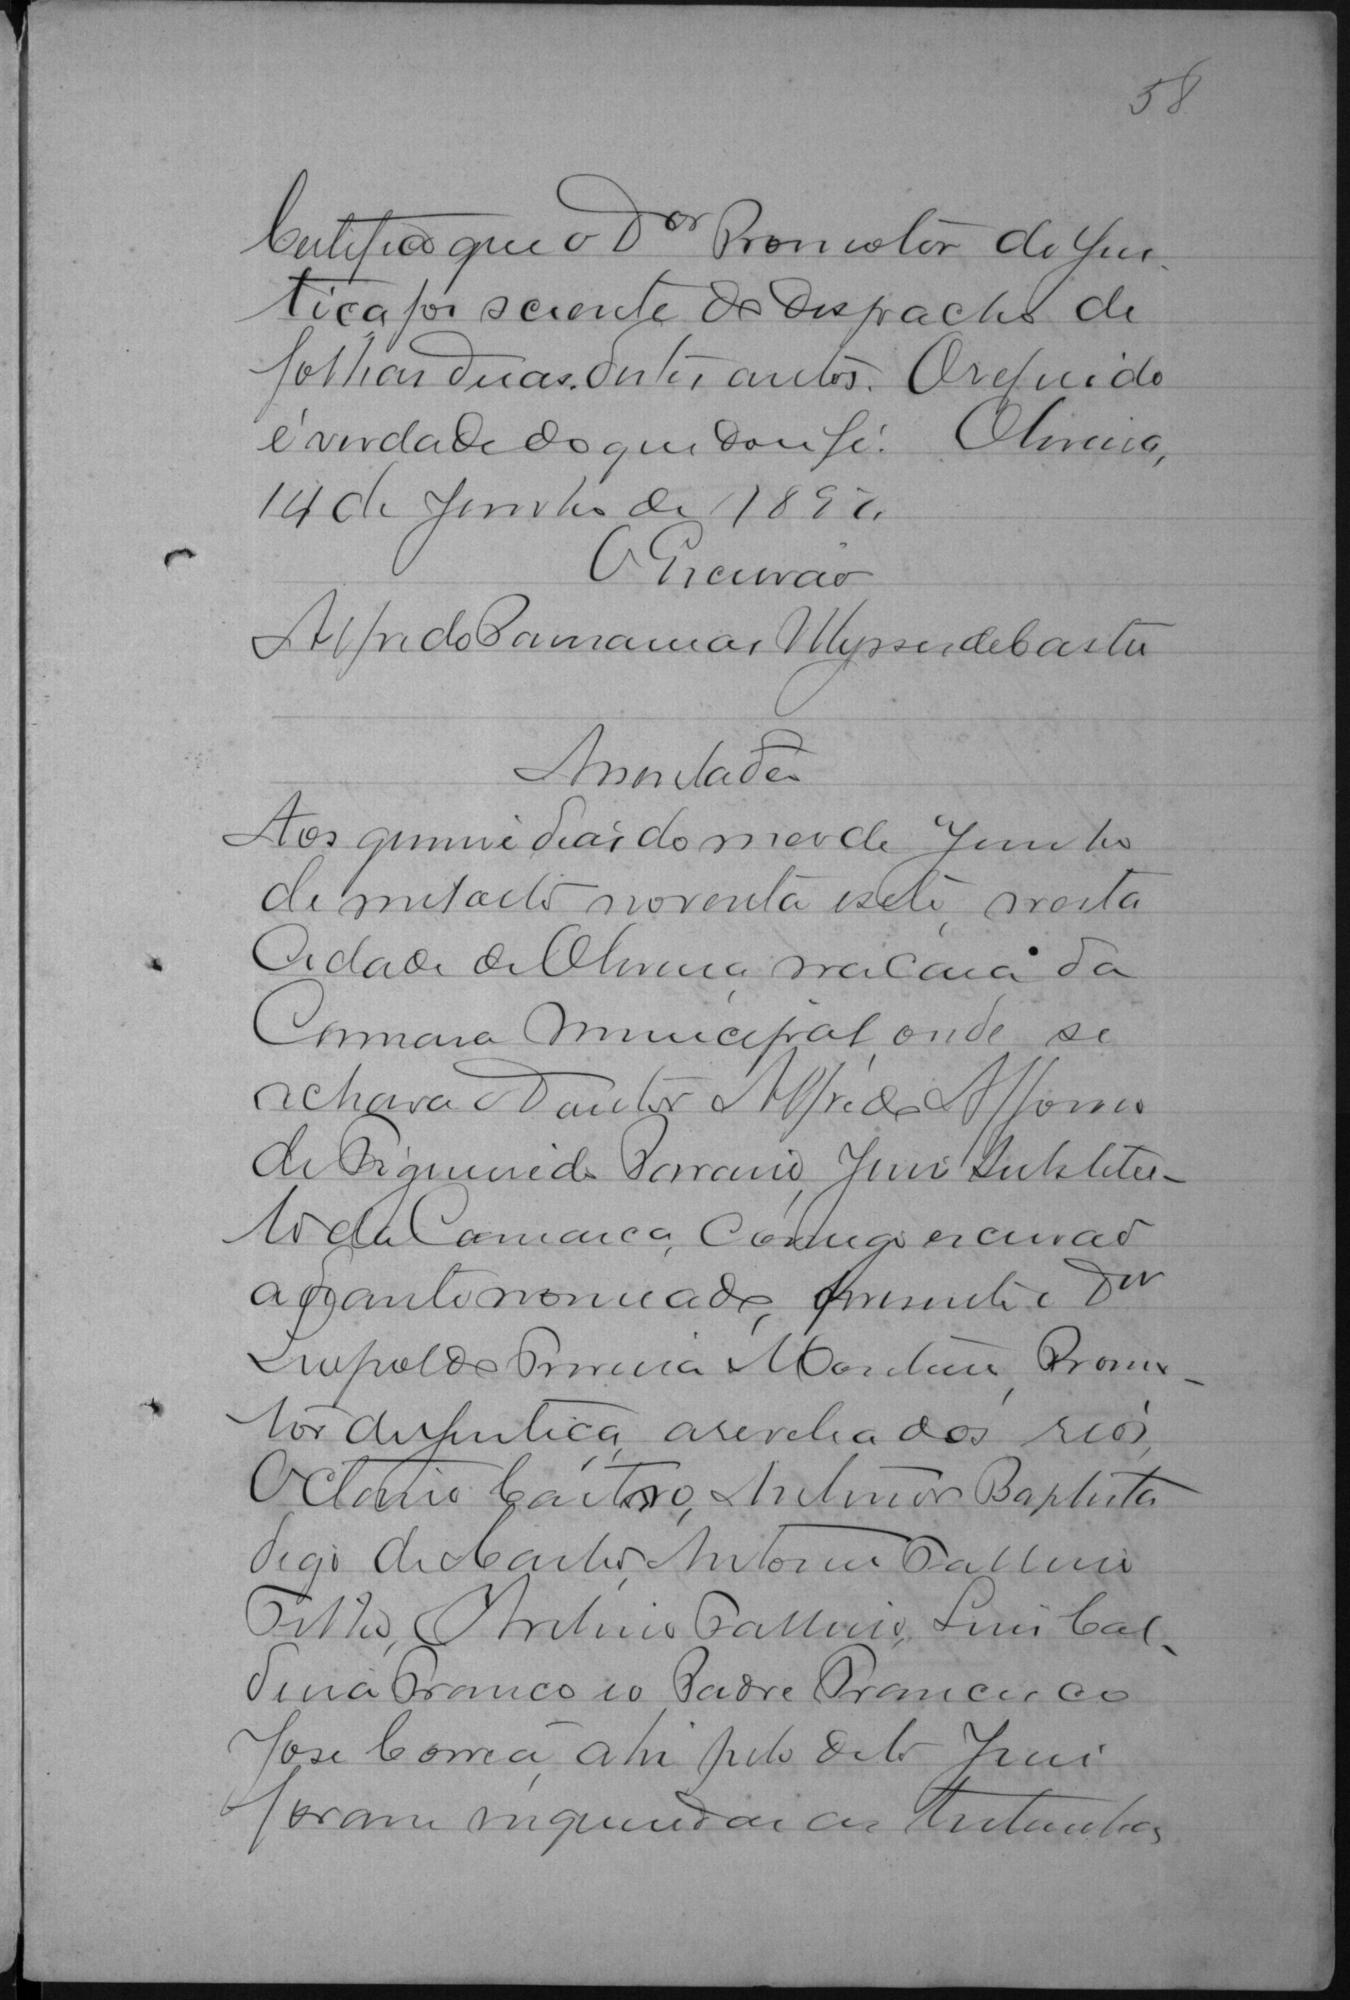 58
Certifico que o Dor Promotor de Jus-
tiça foi sciente do despacho de
folhas duas destes autos. O referido
é verdade do que dou fé. Oliveira,
14 de Junho de 1897.
O Escrivão
Alfredo Ulysses de Castro
Assentada
Aos quinze dias do mez de Junho
de mil oito noventa e sete, nesta
Cidade de Oliveira, na casa da
Camara Municipal, onde se
achava o Doutor Alfredo Affonso
de Juiz Substitu-
to da Comarca, comigo escrivão
adiante nomeado, presente o Dor
Leopoldo Promo-
tor de Justiça, a revelia dos réos,
Octavio Castro, Antenor Baptista
digo de Castro, Antonio
Filho, Luis Cal-
deira Franco e o Padre Francisco
José Corrêa, ahi pelo dito Juiz
foram inqueridas as testemunhas